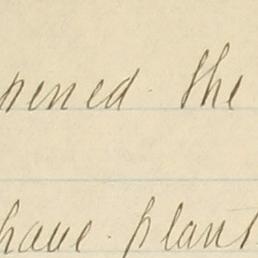 pened the
have plant